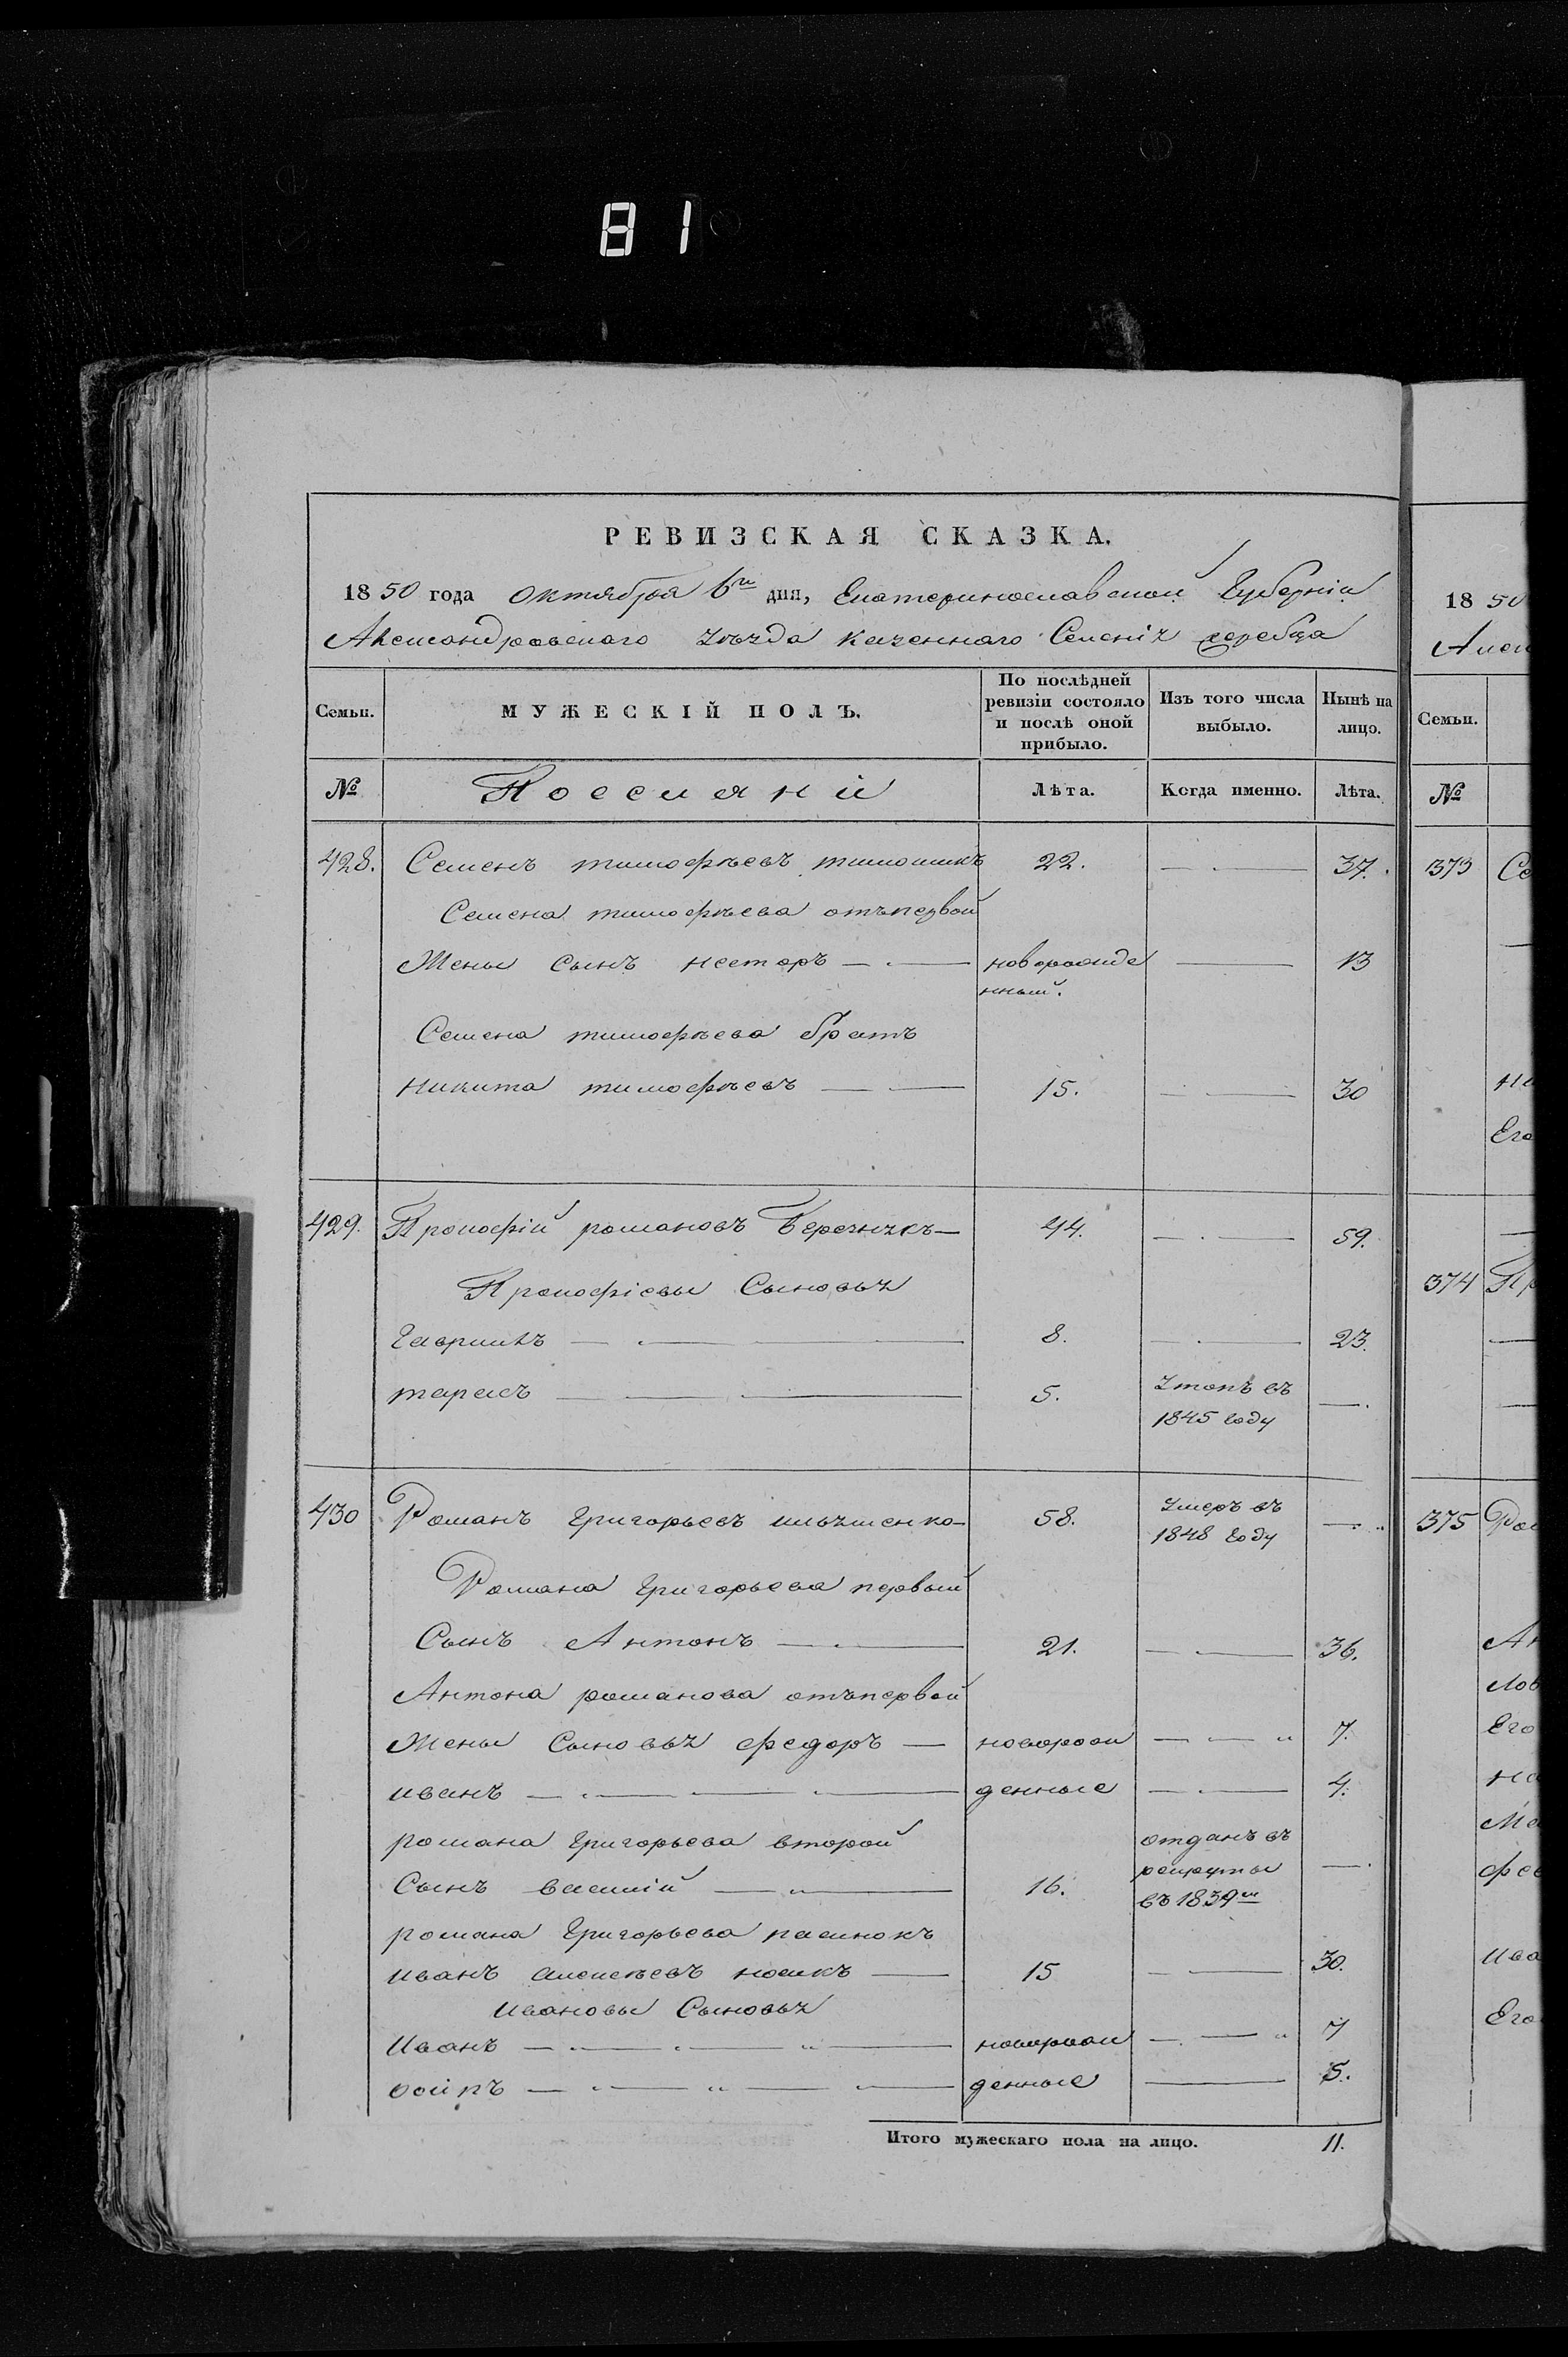 81
РЕВИЗСКАЯ СКАЗКА.
1850 года октября 6го дня, Екатеринославской Губерніи
Александровскаго Уѣзда казеннаго Селенія жеребца
Семьи.
МУЖЕСКІЙ ПОЛЪ.
По послѣдней ревизіи состояло и послѣ оной прибыло.
Изъ того числа выбыло.
Нынѣ на лицо.
№
Поселяній
Лѣта.
Когда именно.
Лѣта.
428. Семенъ тимофѣевъ 22. — 37.
Семена тимофѣева отъ первой
Жены Сынъ несторъ — новорожде нный. — 13
Семена тимофѣева братъ
никита тимофѣевъ — 15. — 30
429. Прокофій романовъ — 44. — 59.
Прокофіевы Сыновья
гаврішлъ — 8. — 23.
тарасъ — 5. Утопъ въ 1845 году —
430 Романъ Григорьевъ — 58. Умеръ въ 1848 году —
Романа Григорьева первый
Сынъ Антонъ — 21. — 36.
Антона романова отъ первой
Жены Сыновья федоръ — новорож — 7.
иванъ — денные — 4.
романа Григорьева второй
Сынъ василій — 16. отданъ въ рекруты въ 1839м —
романа Григорьева пасынокъ
иванъ алексѣевъ — 15 — 30.
ивановы Сыновья
Иванъ — новорож — 7
— денные — 5.
Итого мужескаго пола на лицо. 11.
1850
Семьи.
№
373
374
375